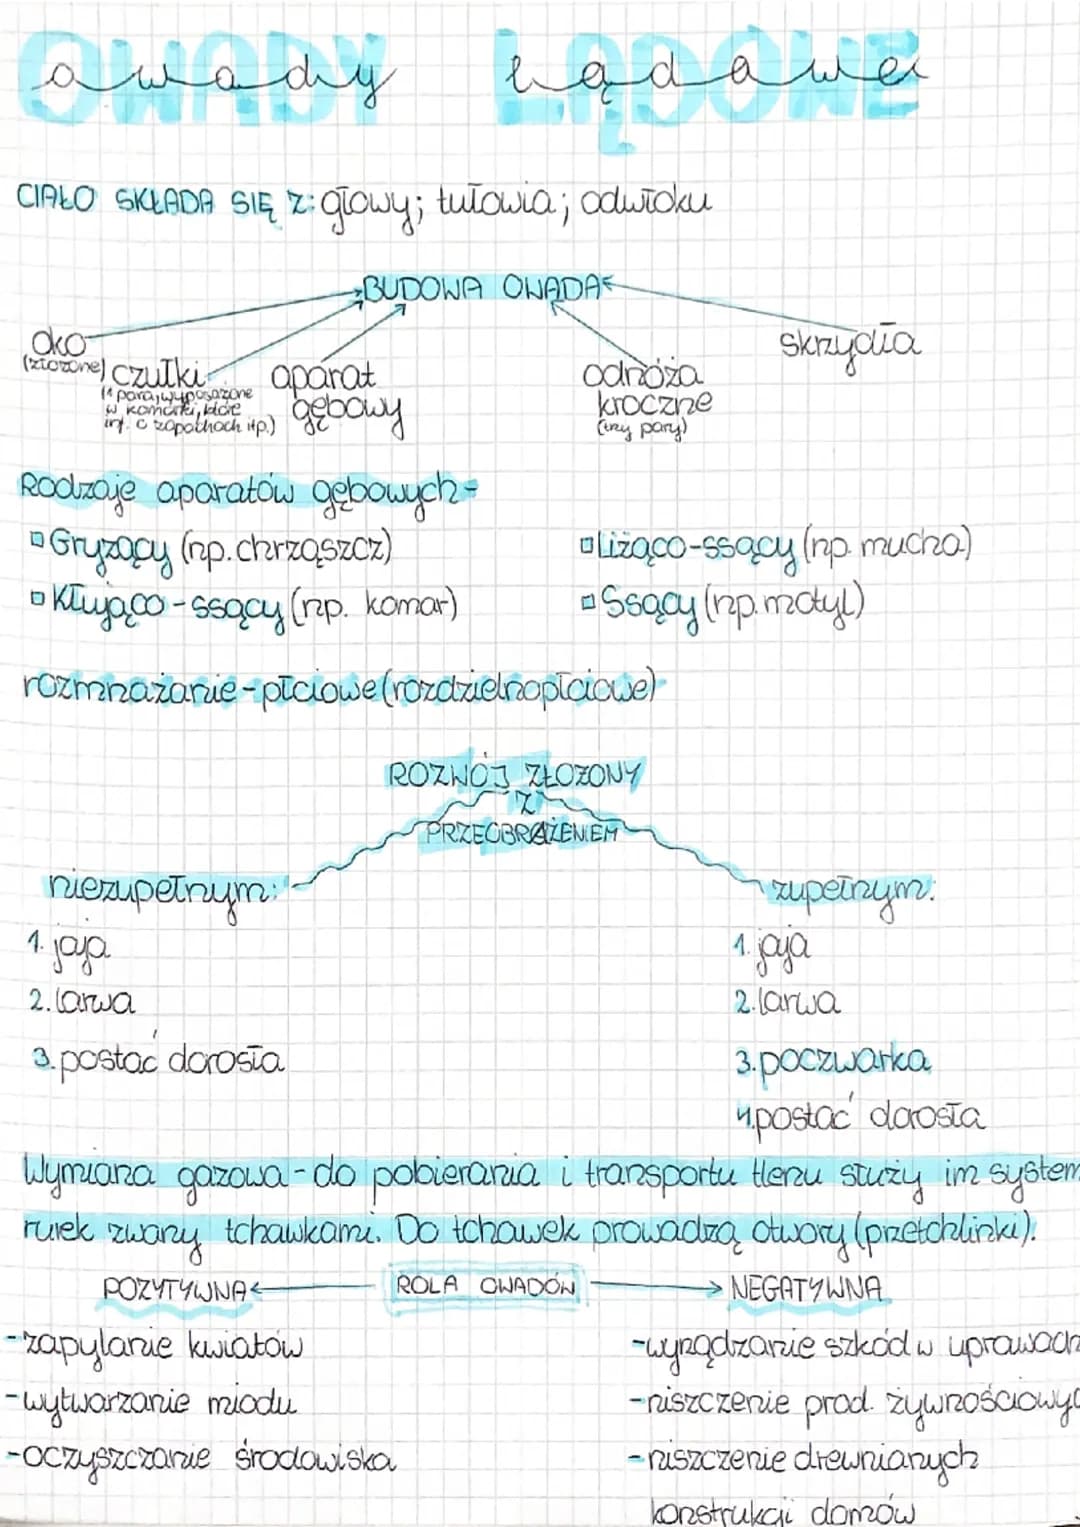 OWADY LĄDOWE
owady lądowe
CIAŁO SKŁADA SIĘ Z: głowy; tułowia; odwłoku
BUDOWA OWADA
oko
(złożone)
czułki
(1 para, wyposażone
w komórki, które
inf. o zapachach itp.)
aparat
gębowy
odnóża
kroczne
(trzy pary)
skrzydła
Rodzaje aparatów gębowych-
Gryzący (np. chrząszcz)
Kłująco-ssący (np. komar)
Liżąco-ssący (np. mucha)
Ssący (np. motyl)
rozmnażanie-płciowe (rozdzielnopłciowe)
ROZWÓJ ZŁOŻONY
Z
PRZEOBRAŻENIEM
niezupełnym:
1. jaja
2. larwa
3. postać dorosła
zupełnym:
1. jaja
2. larwa
3. poczwarka
4. postać dorosła
Wymiana gazowa-do pobierania i transportu tlenu służy im system
rurek zwany tchawkami. Do tchawek prowadzą otwory (przetchlinki).
ROLA OWADÓW
POZYTYWNA
-zapylanie kwiatów
-wytwarzanie miodu
-oczyszczanie środowiska
NEGATYWNA
-wyrządzanie szkód w uprawach
-niszczenie prod. żywnościowyc
-niszczenie drewnianych
konstrukcji domów